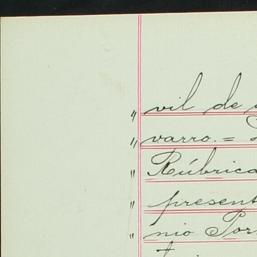 " vil de
" varro. =
" Rúbrica
" present
" nio Por